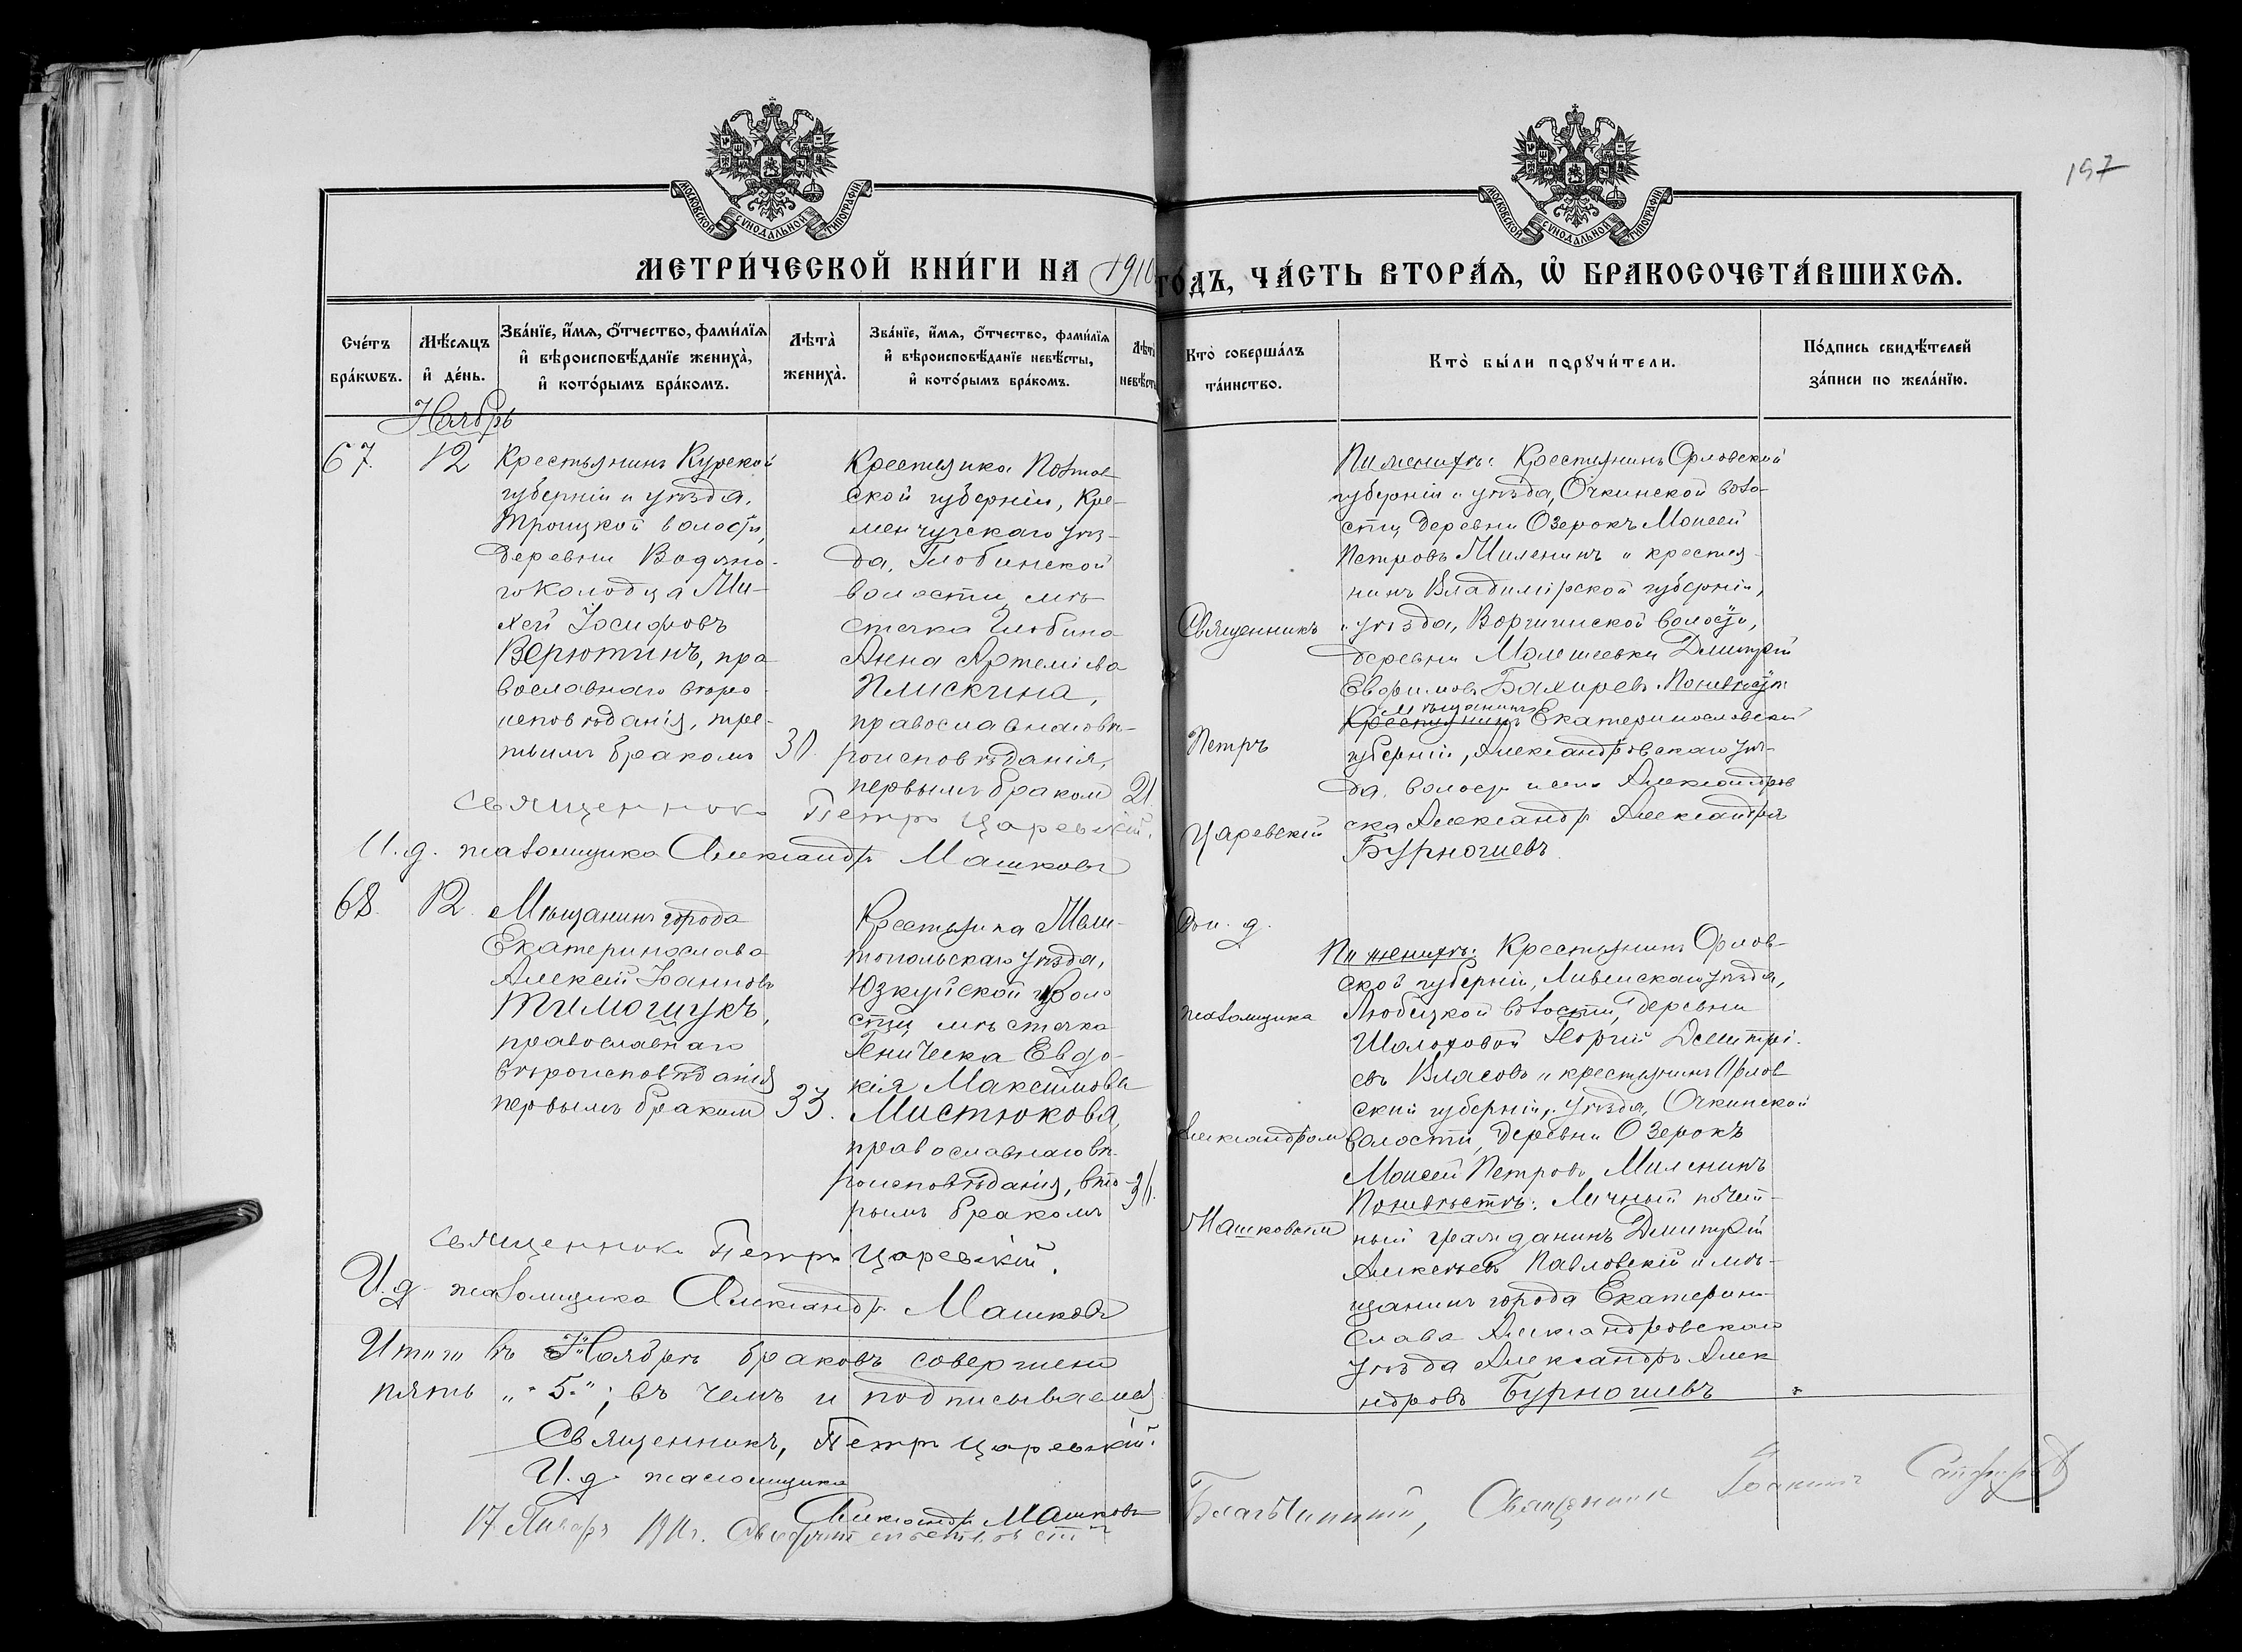 197
МОСКОВСКОЙ СУНОДАЛЬНОЙ ТИПОГРАФІИ
МОСКОВСКОЙ СУНОДАЛЬНОЙ ТИПОГРАФІИ
МЕТРИ́ЧЕСКОЙ КНИ́ГИ НА 1910 ГО́ДЪ, ЧА́СТЬ ВТОРА́Ѧ, Ѽ БРАКОСОЧЕТА́ВШИХСѦ.
Сче́тъ
бра́кѡвъ.
Мѣ́сѧцъ
и҆ де́нь.
Зва́нїе, и҆́мѧ, ѻ҆́тчество, фами́лїѧ
и҆ вѣроисповѣ́данїе жениха̀,
и҆ кото́рымъ бра́комъ.
Лѣта̀
жениха̀.
Зва́нїе, и҆́мѧ, ѻ҆́тчество, фами́лїѧ
и҆ вѣроисповѣ́данїе невѣ́сты,
и҆ кото́рымъ бра́комъ.
Лѣта̀
невѣ́сты
Кто̀ соверша́лъ
та́инство.
Кто̀ бы́ли порꙋчи́тели.
По́дпись свидѣ́телей
за́писи по жела́нїю.
Ноябрь
67.
12
Крестьянинъ Курской
губерніи и уѣзда,
Троицкой волости,
деревни Водяно-
го Колодца Ми-
хей Іосифовъ
Верютинъ, пра
вославнаго вѣро-
исповѣданія, тре-
тьимъ бракомъ
30.
Крестьянка Полтав
ской губерніи, Кре-
менчугскаго уѣз-
да, Глобинской
волости, мѣ-
стечка Глобина
Анна Артеміева
Плискина,
православнаго вѣ-
роисповѣданія,
первымъ бракомъ
21.
Священникъ Петръ Царевскій.
И. д. псаломщика Александръ Машковъ
Священникъ
Петръ
Царевскій
По женихѣ: Крестьянинъ Орловской
губерніи и уѣзда, Очкинской воло-
сти, деревни Озерокъ Моисей
Петровъ Миленинъ и крестья-
нинъ Владимірской губерніи,
и уѣзда, волости,
деревни Дмитрій
Евфимовъ Бахиревъ. По невѣстѣ:
мѣщанинъ
Крестьянинъ Екатеринославской
губерніи, Александровскаго уѣз-
да, волости и села Александров
ска Александръ Александровъ
Бурношевъ.
68.
12
Мѣщанинъ города
Екатеринослава
Алексѣй Іоанновъ
Тимощукъ,
православнаго
вѣроисповѣданія
первымъ бракомъ
33.
Крестьянка Мели-
топольскаго уѣзда,
Юзкуйской воло
сти, мѣстечка
Геническа Евдо-
кія Максимова
Мистюкова,
православнаго вѣ-
роисповѣданія, вто-
рымъ бракомъ
30.
Священникъ Петръ Царевскій.
И. д. псаломщика Александръ Машковъ
и. д.
псаломщика
Александромъ
Машковымъ
По женихѣ: Крестьянинъ Орлов-
ской губерніи, Ливенскаго уѣзда,
Любицкой волости, деревни
Шолоховой Георгій Димитрі-
евъ Власовъ и крестьянинъ Орлов
ской губерніи, и уѣзда, Очкинской
волости, деревни Озерокъ
Моисей Петровъ Миленинъ
По невѣстѣ: Личный почет-
ный гражданинъ Дмитрій
Алексѣевъ Павловскій и мѣ-
щанинъ города Екатерино
слава Александровскаго
уѣзда Александръ Алек
ндровъ Бурношевъ
Итого въ Ноябрѣ браковъ совершено
пять „5“; въ чемъ и подписываемся
Священникъ, Петръ Царевскій.
И. д. псаломщика
Александръ Машковъ
17 Января 1911 г.
Благочинный, Священникъ Іоакимъ